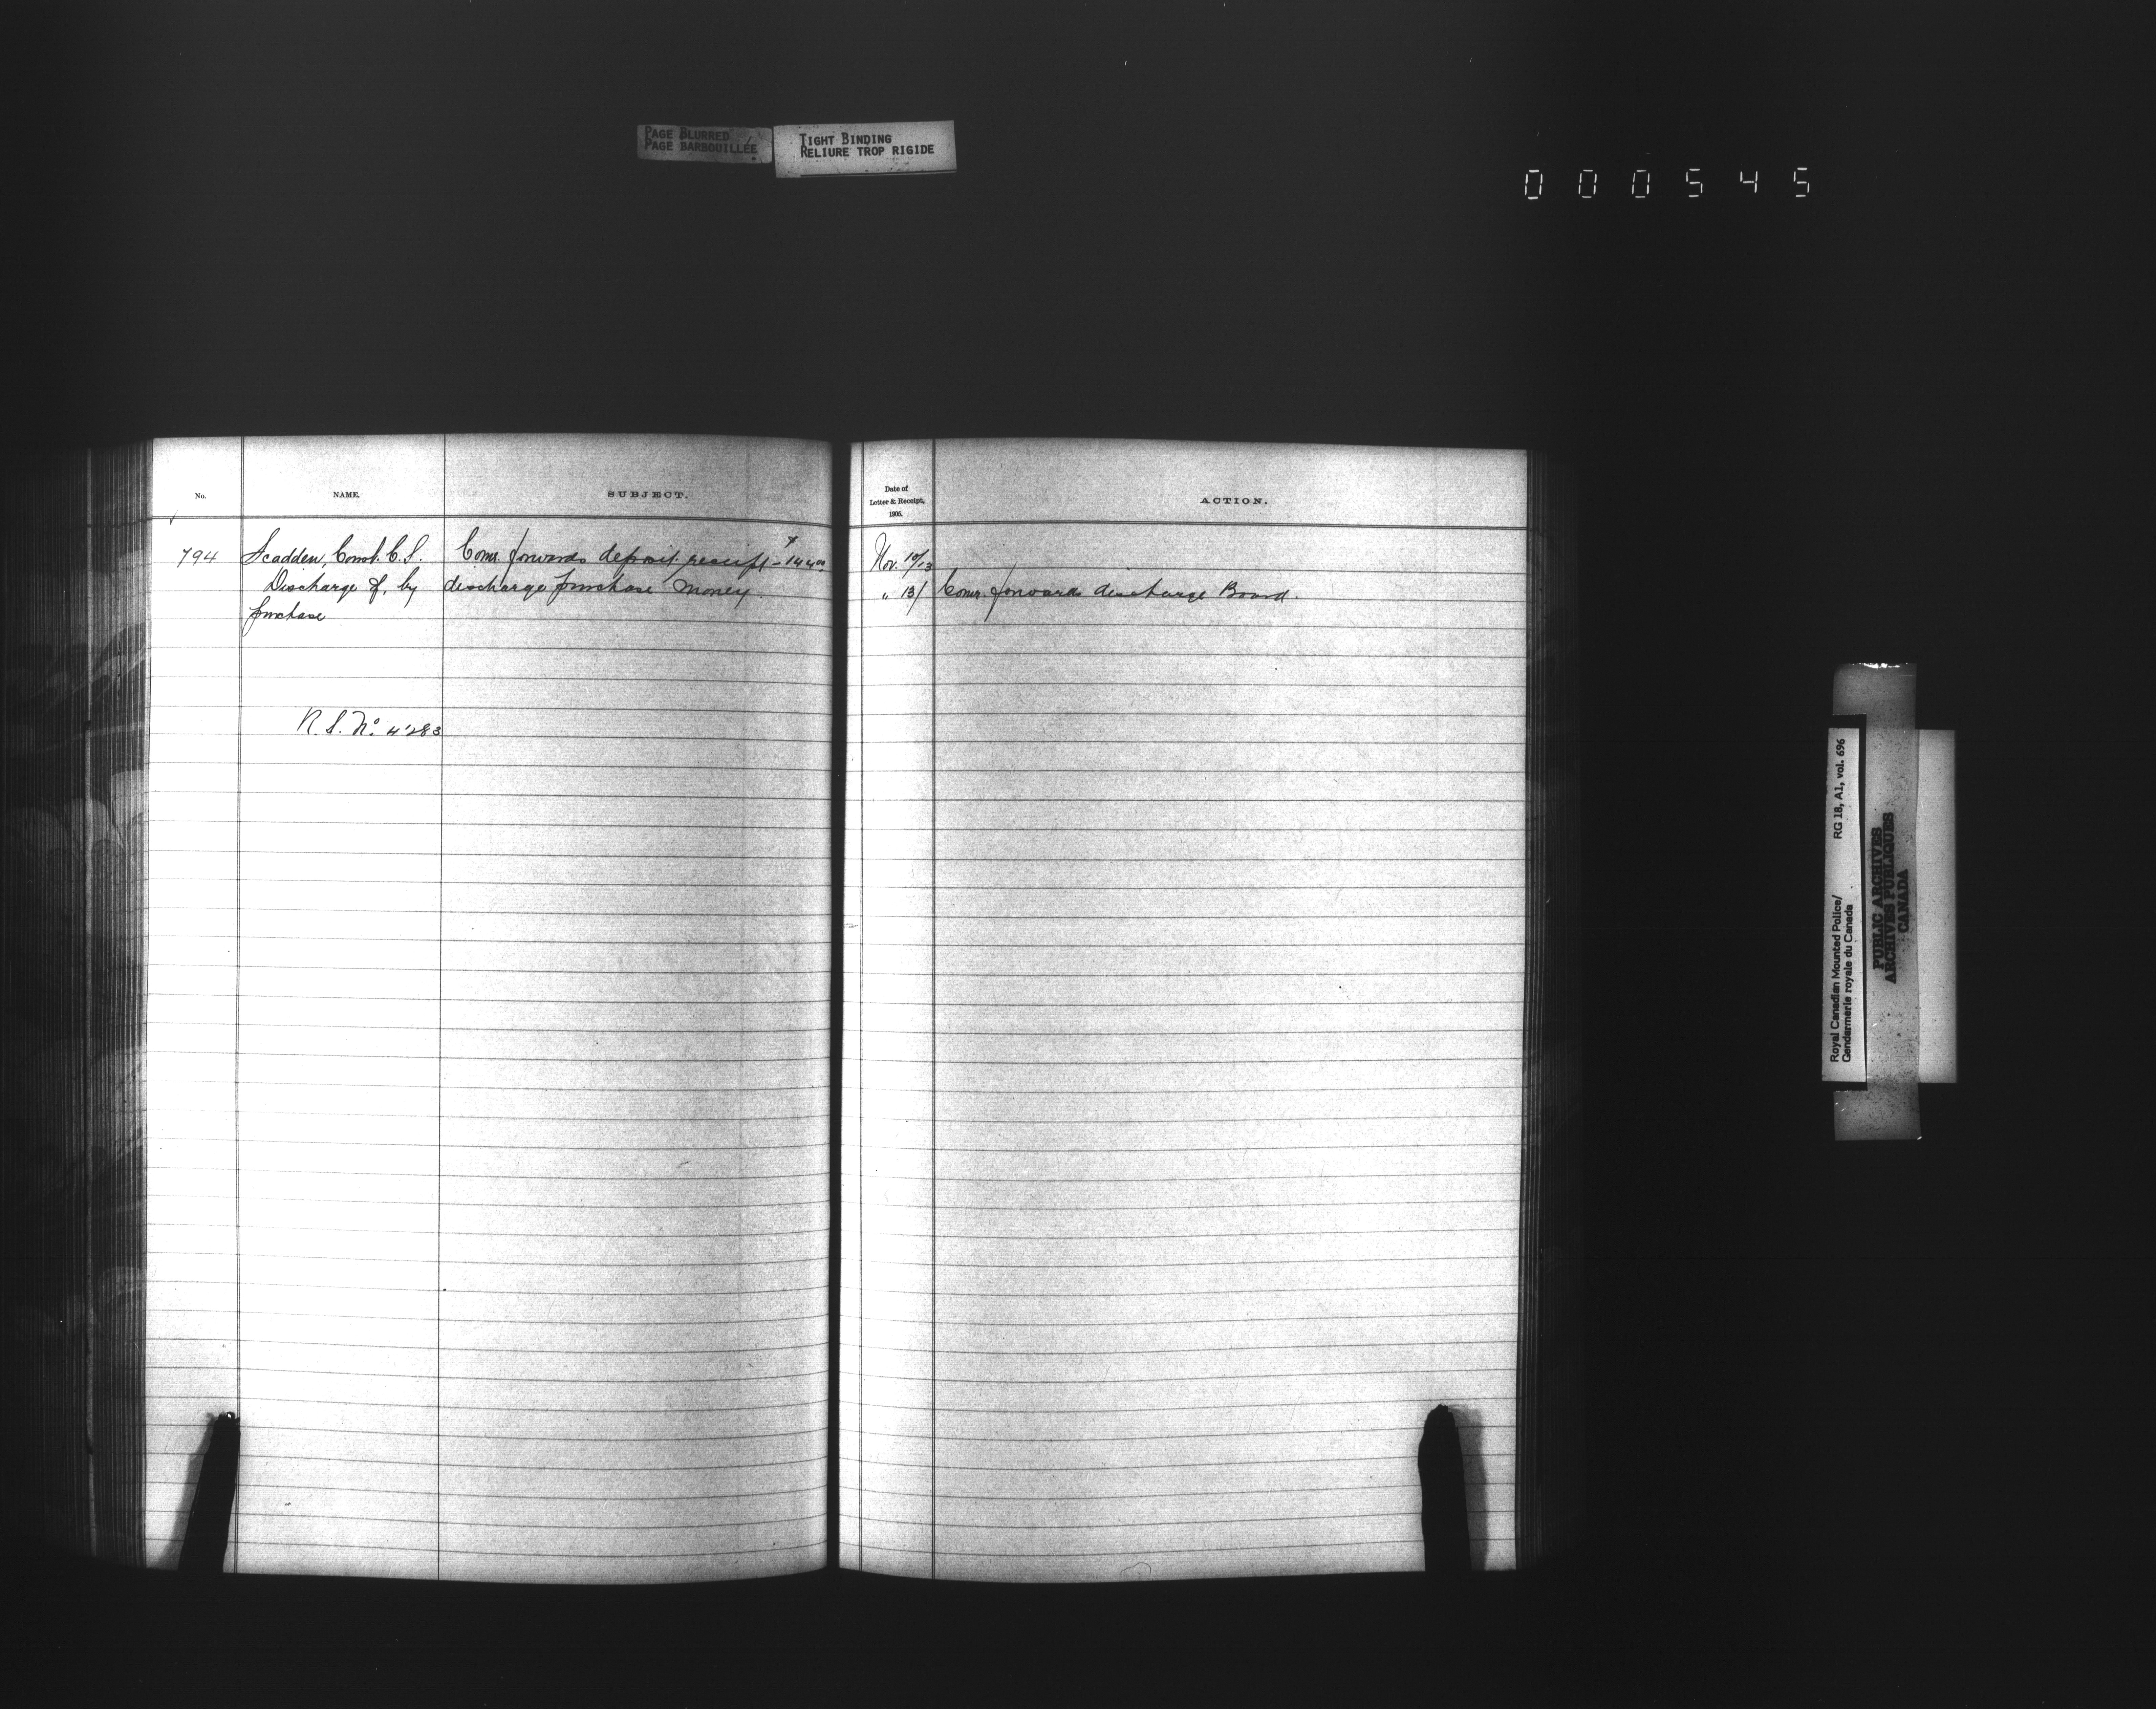 PAGE BLURRED
PAGE BARBOUILLÉE
TIGHT BINDING
RELIURE TROP RIGIDE
000545
No.
NAME.
SUBJECT.
Date of
Letter & Receipt,
1905.
ACTION.
794
Scadden, Const. C.S.
Discharge of, by
purchase
Comr. forwards deposit receipt - $144.00
discharge purchase money.
Nov. 10/13
" 13/
Comr. forwards discharge Board.
R.S. No. 4283
Royal Canadian Mounted Police/
Gendarmerie royale du Canada
RG 18, A1, vol. 696
PUBLIC ARCHIVES
ARCHIVES PUBLIQUES
CANADA